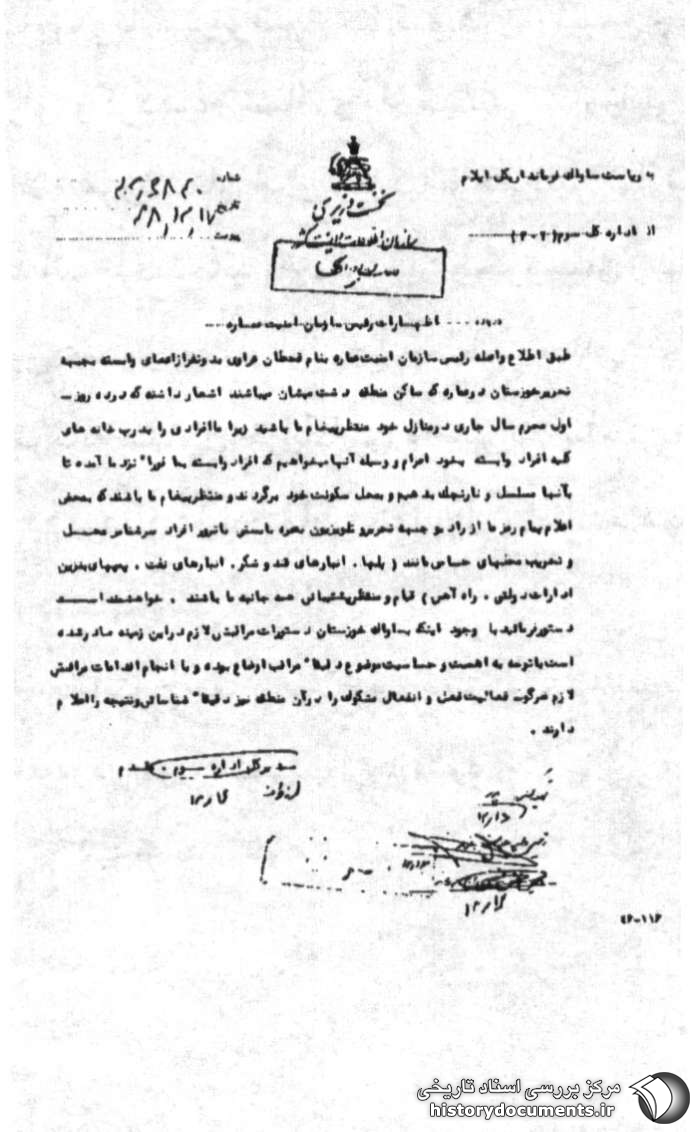 به ریاست ساواک فرمانداریکل ایلام
از اداره کل سوم
شماره
تاریخ
پیوست
نخست وزیری
سازمان اطلاعات و امنیت کشور
درباره اظهارات رئیس سازمان امنیت عماره
طبق اطلاع واصله رئیس سازمان امنیت عماره بنام قحطان عزاوی بدونفرازاعضای وابسته بجبهه
تحریرخوزستان درعماره که ساکن منطقه دشت میشان میباشند اشعار داشته که درده روز
اول محرم سال جاری درمنازل خود منتظرپیغام ما باشید زیرا ماافرادی را بدرب خانه های
کلیه افراد وابسته بخود اعزام و وسیله آنها میخواهیم که افراد وابسته بما فورا" نزد ما آمده تا
بآنها مسلسل و نارنجک بدهیم و بمحل سکونت خود برگردند و منتظرپیغام ما باشند که بمحض
اعلام پیام رمز ما از رادیو جبهه تحریرو تلویزیون بصره بایستی باترور افراد سرشناس محل
و تخریب محلهای حساس مانند ( پلها . انبارهای قند و شکر . انبارهای نفت . پمپهای بنزین
ادارات دولتی . راه آهن ) قیام و منتظرپشتیبانی همه جانبه ما باشند . خواهشمند است
دستورفرمائید با وجود اینکه بساواک خوزستان دستورات مراقبتی لازم دراین زمینه صادرشده
است باتوجه به اهمیت و حساسیت موضوع دقیقا" مراقب اوضاع بوده و با انجام اقدامات مراقبتی
لازم هرگونه فعالیت فعل و انفعال مشکوک را درآن منطقه نیز دقیقا" شناسائی ونتیجه رااعلام
دارند .
مدیرکل اداره سوم . مقدم
۴۶-۱۱۶
مرکز بررسی اسناد تاریخی
historydocuments.ir